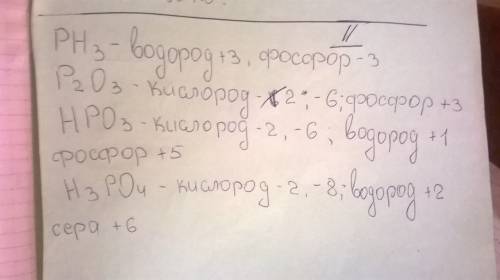 II
PH3 - водород +3, фосфор -3
P2O3 - кислород -2, -6; фосфор +3
HPO3 - кислород -2, -6; водород +1
фосфор +5
H3PO4 - кислород -2, -8; водород +2
сера +6